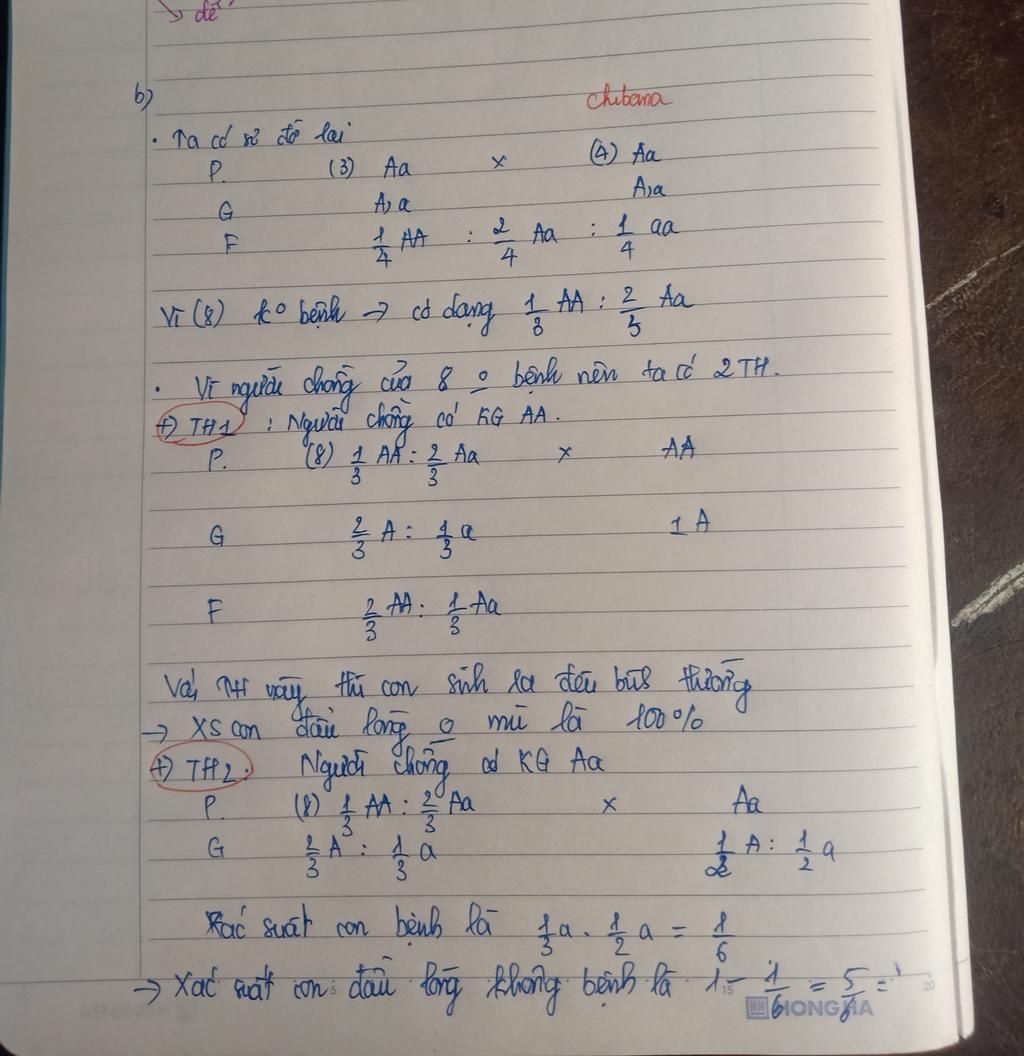 → dễ
b)
chibana
• Ta có sơ đồ lai
P. (3) Aa × (4) Aa
G A,a A,a
F 1/4 AA : 2/4 Aa : 1/4 aa
Vì (8) k° bệnh → có dạng 1/3 AA : 2/3 Aa
• Vì người chồng của 8 o bệnh nên ta có 2 TH.
+) TH1 : Người chồng có KG AA.
P. (8) 1/3 AA : 2/3 Aa × AA
G 2/3 A : 1/3 a 1 A
F 2/3 AA : 1/3 Aa
Với TH này thì con sinh ra đều bình thường
→ XS con đầu lòng o mù là 100%
+) TH2. Người chồng có KG Aa
P. (8) 1/3 AA : 2/3 Aa × Aa
G 2/3 A : 1/3 a 1/2 A : 1/2 a
Xác suất con bệnh là 1/3 a . 1/2 a = 1/6
→ Xác suất con đầu lòng không bệnh là 1 - 1/6 = 5/6 =
5 15 20
HH HONG HA